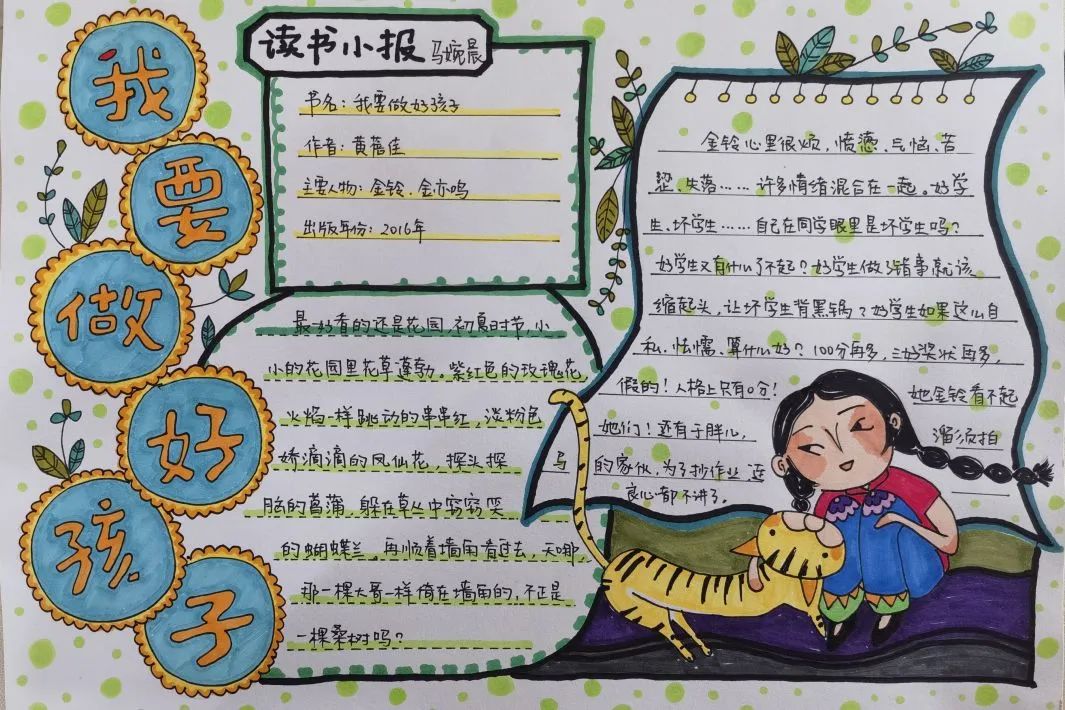 我要做好孩子
读书小报 马婉晨
书名：我要做好孩子
作者：黄蓓佳
主要人物：金铃、金亦鸣
出版年份：2016年
最好看的还是花园，初夏时节，小
小的花园里花草蓬勃。紫红色的玫瑰花，
火焰一样跳动的串串红，淡粉色
娇滴滴的凤仙花，探头探
脑的菖蒲，躲在草丛中窃窃哭
的蝴蝶兰，再顺着墙角看过去，天哪，
那一棵大哥一样倚在墙角的，不正是
一棵桑树吗？
金铃心里很烦，愤懑、气恼、苦
涩、失落……许多情绪混合在一起。好学
生、坏学生……自己在同学眼里是坏学生吗？
好学生又有什么了不起？好学生做错事就该
缩起头，让坏学生背黑锅？好学生如果这么自
私、怯懦、算什么好？100分再多，三好奖状再多，
假的！人格上只有0分！ 她金铃看不起
她们！还有于胖儿， 溜须拍
马的家伙，为了抄作业 连
良心都不讲了。